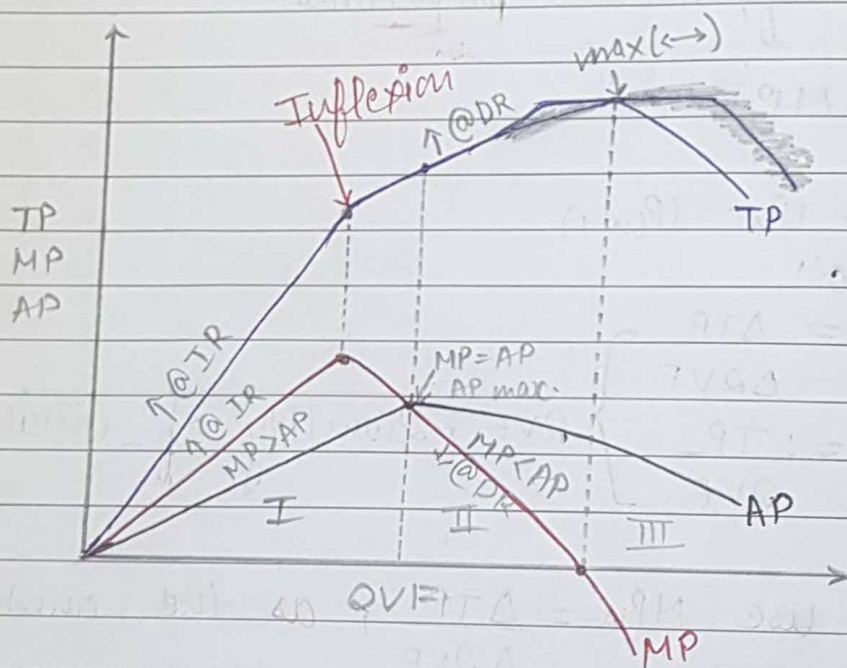 max(↔)
Inflexion
↑@DR
TP
MP
AP
TP
↑@IR
↑@IR
MP>AP
MP=AP
AP max.
MP<AP
↓@DR
I
II
III
AP
QVF
MP